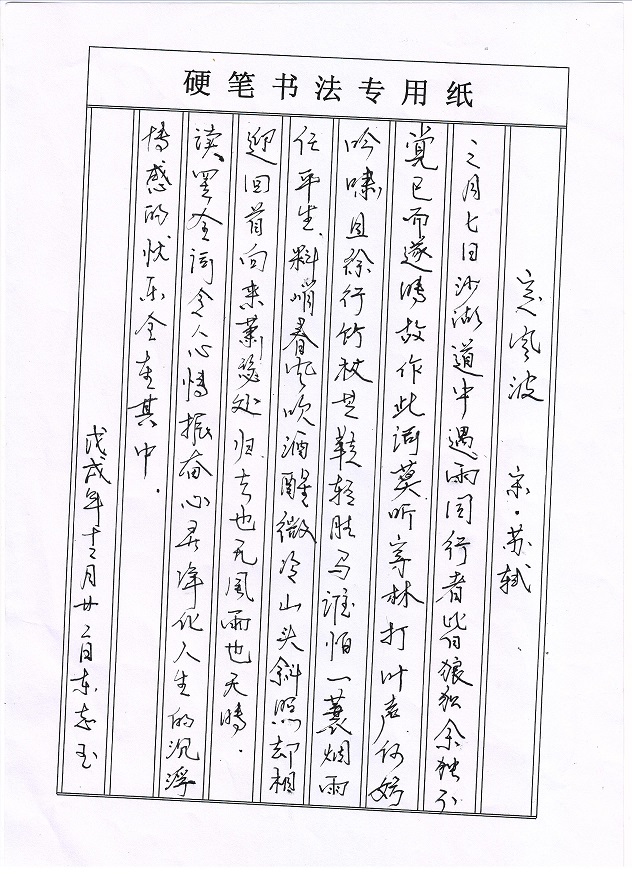 硬笔书法专用纸
定风波 宋·苏轼
三月七日沙湖道中遇雨同行者皆狼狈余独不
觉已而遂晴故作此词莫听穿林打叶声何妨
吟啸且徐行竹杖芒鞋轻胜马谁怕一蓑烟雨
任平生、料峭春风吹酒醒微冷山头斜照却相
迎回首向来萧瑟处归去也无风雨也无晴.
读罢全词令人心情振奋心灵净化人生的沉浮
情感的忧乐全在其中.
戊戌年十二月廿二日东志玉